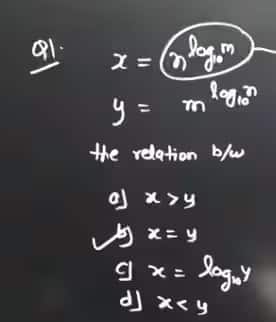 Q1. x = n^log₁₀m
y = m^log₁₀n
the relation b/w
a) x > y
b) x = y
c) x = log₁₀y
d) x < y